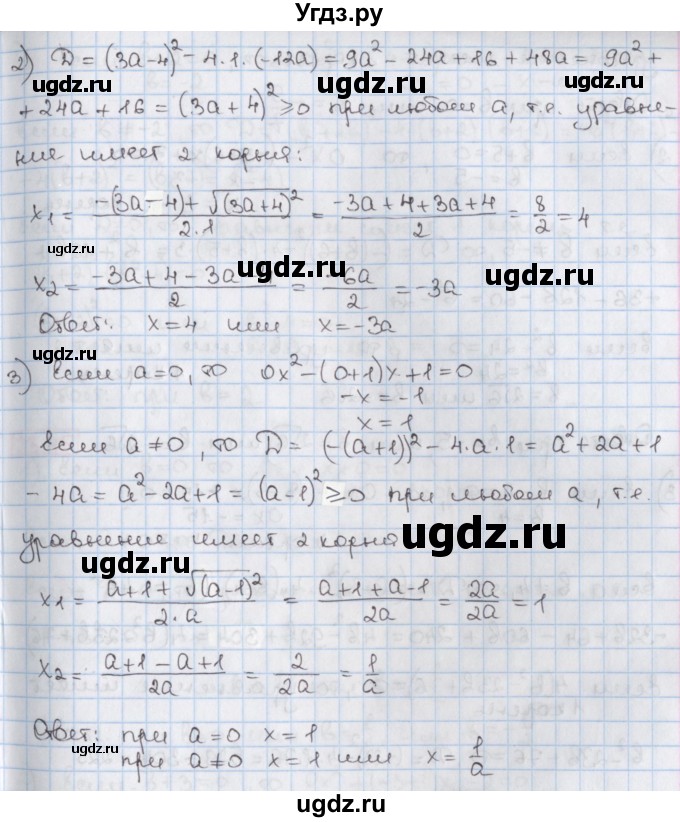 Угдз.ру
2) D = (3a-4)² - 4·1·(-12a) = 9a² - 24a + 16 + 48a = 9a² +
ugdz.ru ugdz.ru
+ 24a + 16 = (3a+4)² ≥ 0 при любом a, т.е. уравне-
ugdz.ru
ние имеет 2 корня:
x₁ = (-(3a-4) + √(3a+4)²)/(2·1) = (-3a+4+3a+4)/2 = 8/2 = 4
ugdz.ru
x₂ = (-3a+4-3a)/2 = -6a/2 = -3a
ugdz.ru ugdz.ru
Ответ: x=4 или x=-3a
ugdz.ru
3) если a=0, то 0x² - (0+1)x + 1 = 0
-x = -1
x = 1
ugdz.ru
если a≠0, то D = (-(a+1))² - 4·a·1 = a² + 2a + 1
- 4a = a² - 2a + 1 = (a-1)² ≥ 0 при любом a, т.е.
ugdz.ru ugdz.ru
уравнение имеет 2 корня
x₁ = (a+1+√(a-1)²)/(2·a) = (a+1+a-1)/2a = 2a/2a = 1
ugdz.ru
x₂ = (a+1-a+1)/2a = 2/2a = 1/a
ugdz.ru
Ответ: при a=0 x=1
ugdz.ru
при a≠0 x=1 или x = 1/a
ugdz.ru
ugdz.ru